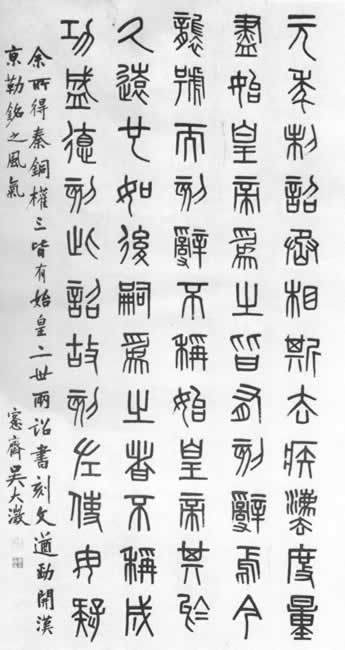 元年制詔丞相斯去疾灋度量
盡始皇帝為之皆有刻辭焉今
襲號而刻辭不稱始皇帝其於
久遠也如後嗣為之者不稱成
功盛德刻此詔故刻左使毋疑
余所得秦銅權三皆有始皇二世兩詔書刻文遒勁開漢
京勒銘之風氣 愙齋吳大澂